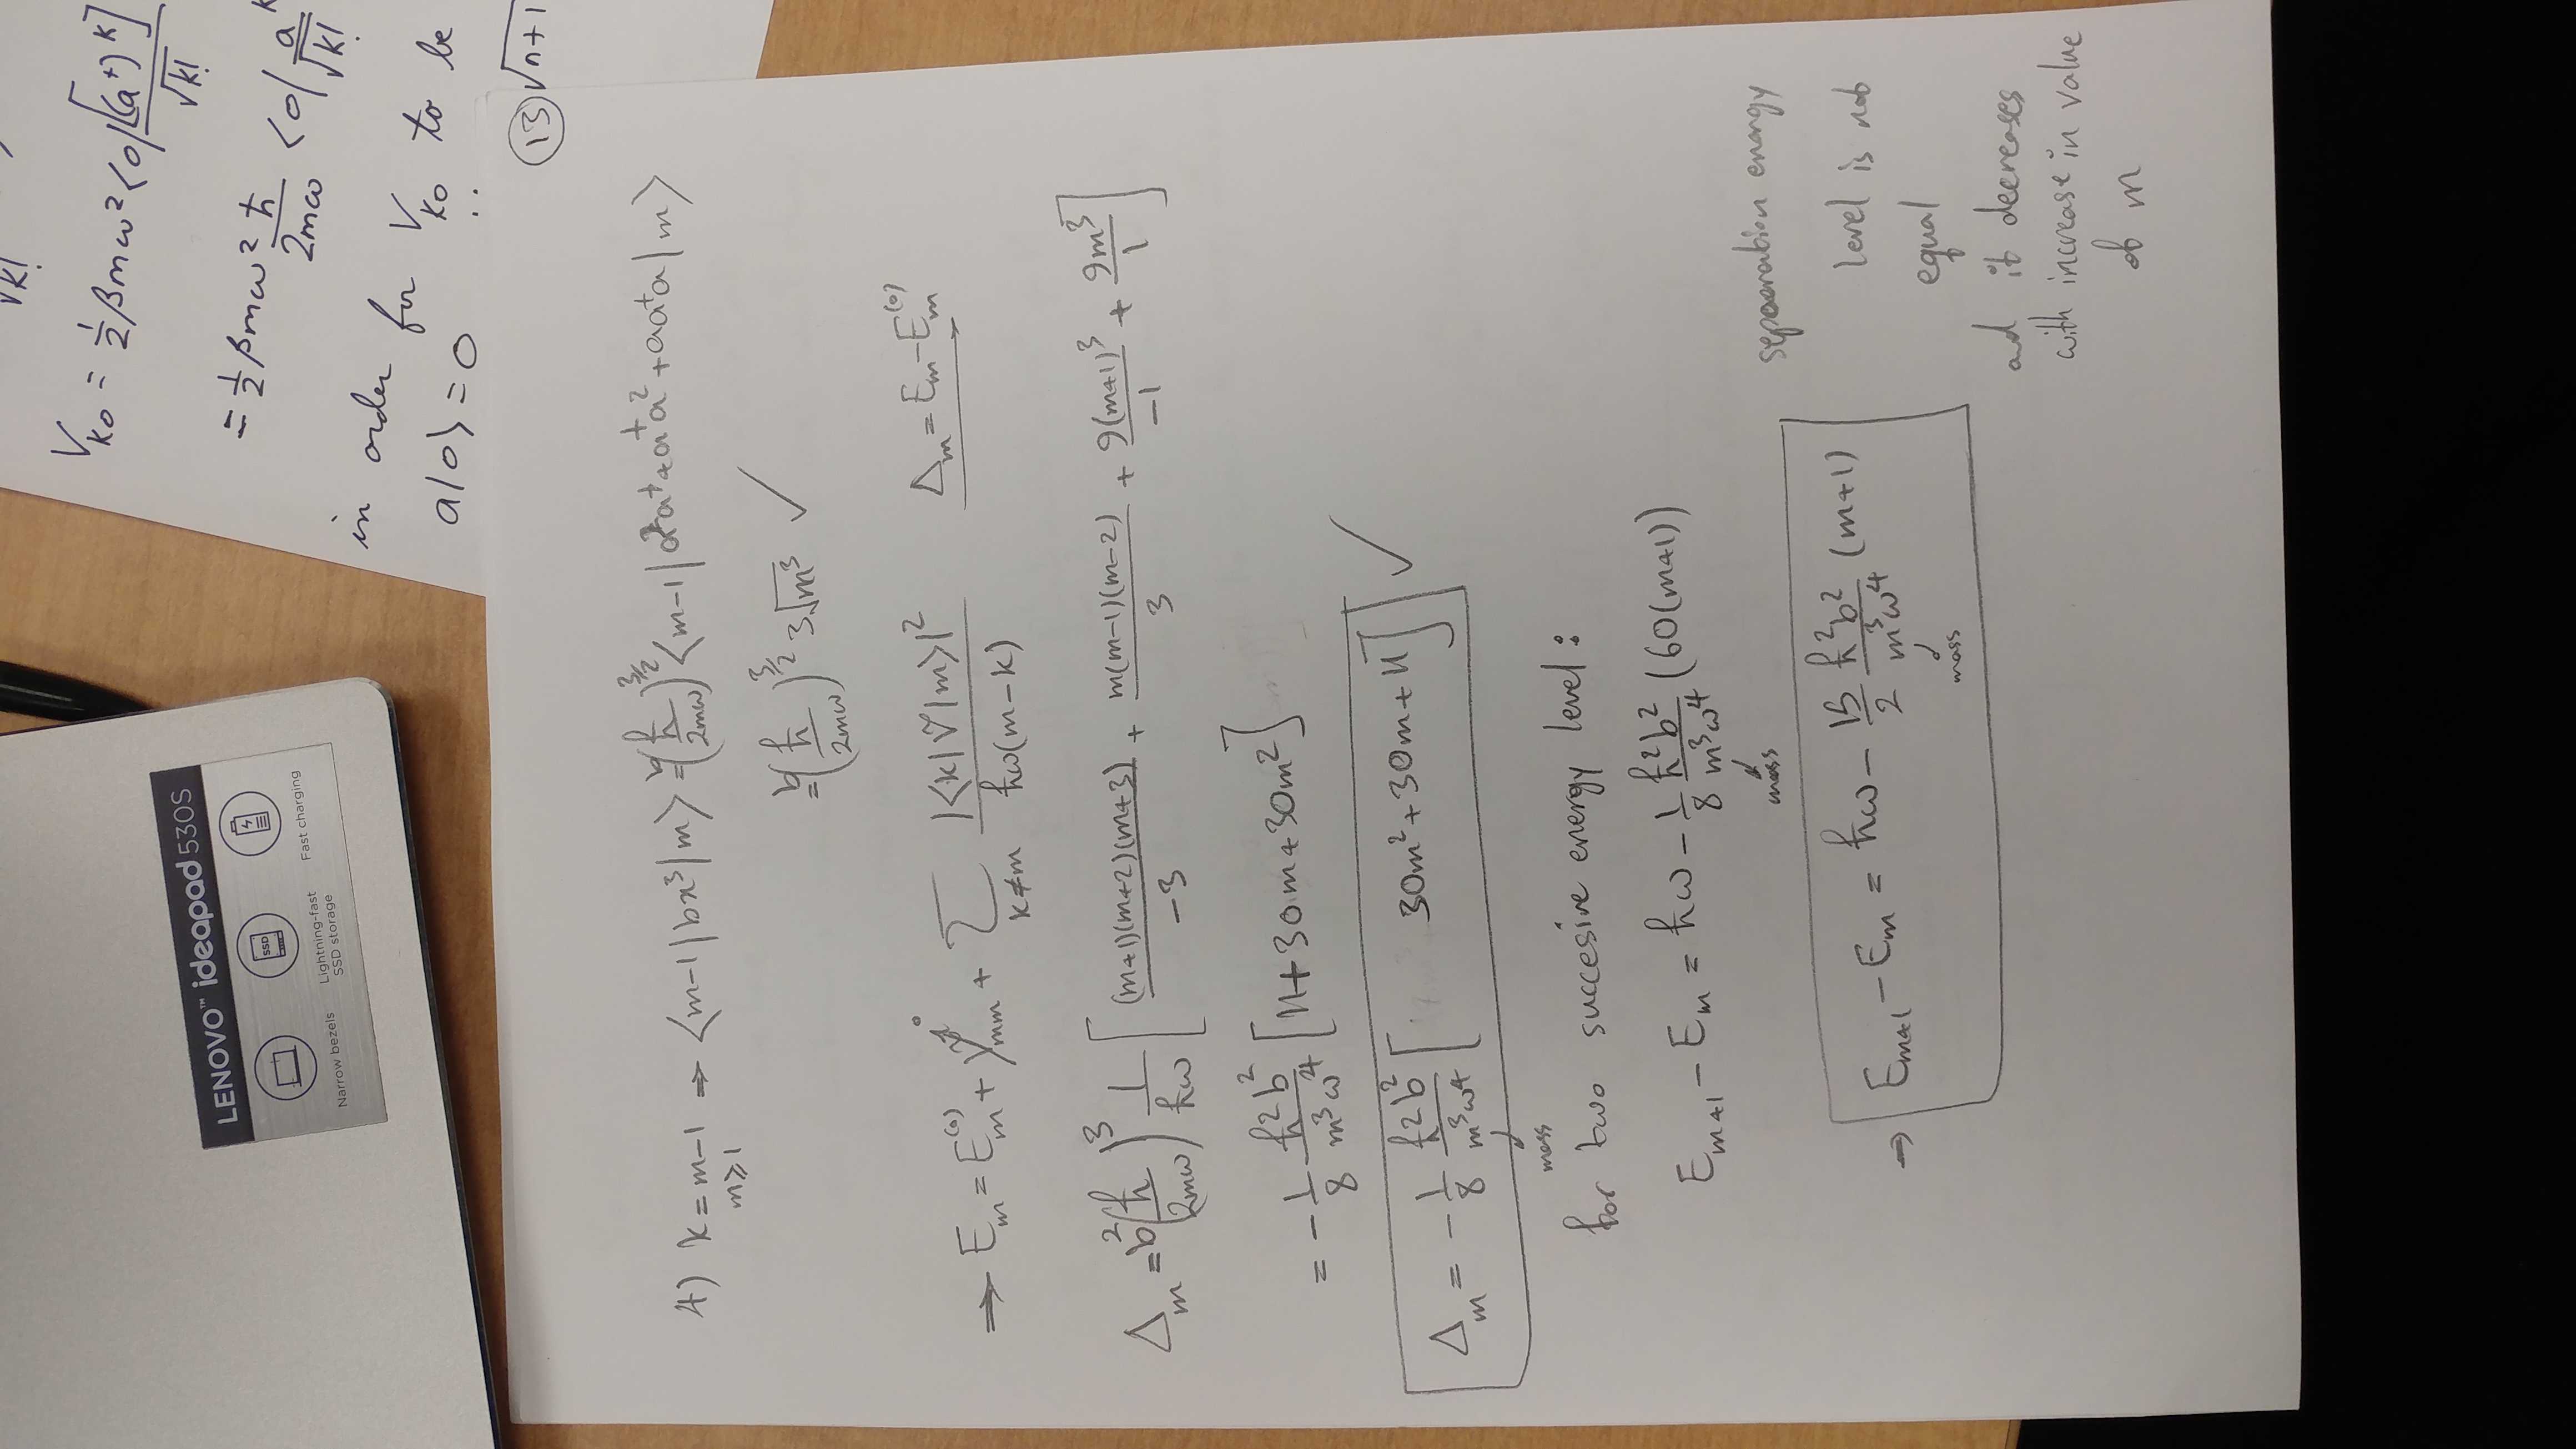 LENOVO™ ideapad 530S
SSD
Narrow bezels
Lightning-fast SSD storage
Fast charging
√k!
V_k0 = 1/2 βmω² <0|[(a⁺)^k]/√k!
= 1/2 βmω² ħ/2mω <0| a^k/√k!
in order for V_k0 to be
a|0> = 0
⑬ √n+1
4) k = m-1 ⇒ <m-1|bx³|m> = b(ħ/2mω)^3/2 <m-1|a²a⁺+a⁺a²+aa⁺a|m>
m⩾1
= b(ħ/2mω)^3/2 3√m³ ✓
⇒ E_m = E_m^(0) + V_mm + Σ_k≠m |<k|V|m>|²/ħω(m-k) Δ_m = E_m - E_m^(0)
Δ_m = b²(ħ/2mω)³ 1/ħω [(m+1)(m+2)(m+3)/-3 + m(m-1)(m-2)/3 + 9(m+1)³/-1 + 9m³/1]
= -1/8 ħ²b²/m³ω⁴ [11+30m+30m²]
Δ_m = -1/8 ħ²b²/m³ω⁴ [30m²+30m+11] ✓
mass
for two succesive energy level:
E_m+1 - E_m = ħω - 1/8 ħ²b²/m³ω⁴ (60(m+1))
mass
→ E_m+1 - E_m = ħω - 15/2 ħ²b²/m³ω⁴ (m+1)
mass
separation energy
level is not
equal
and it decreases
with increase in value
of m